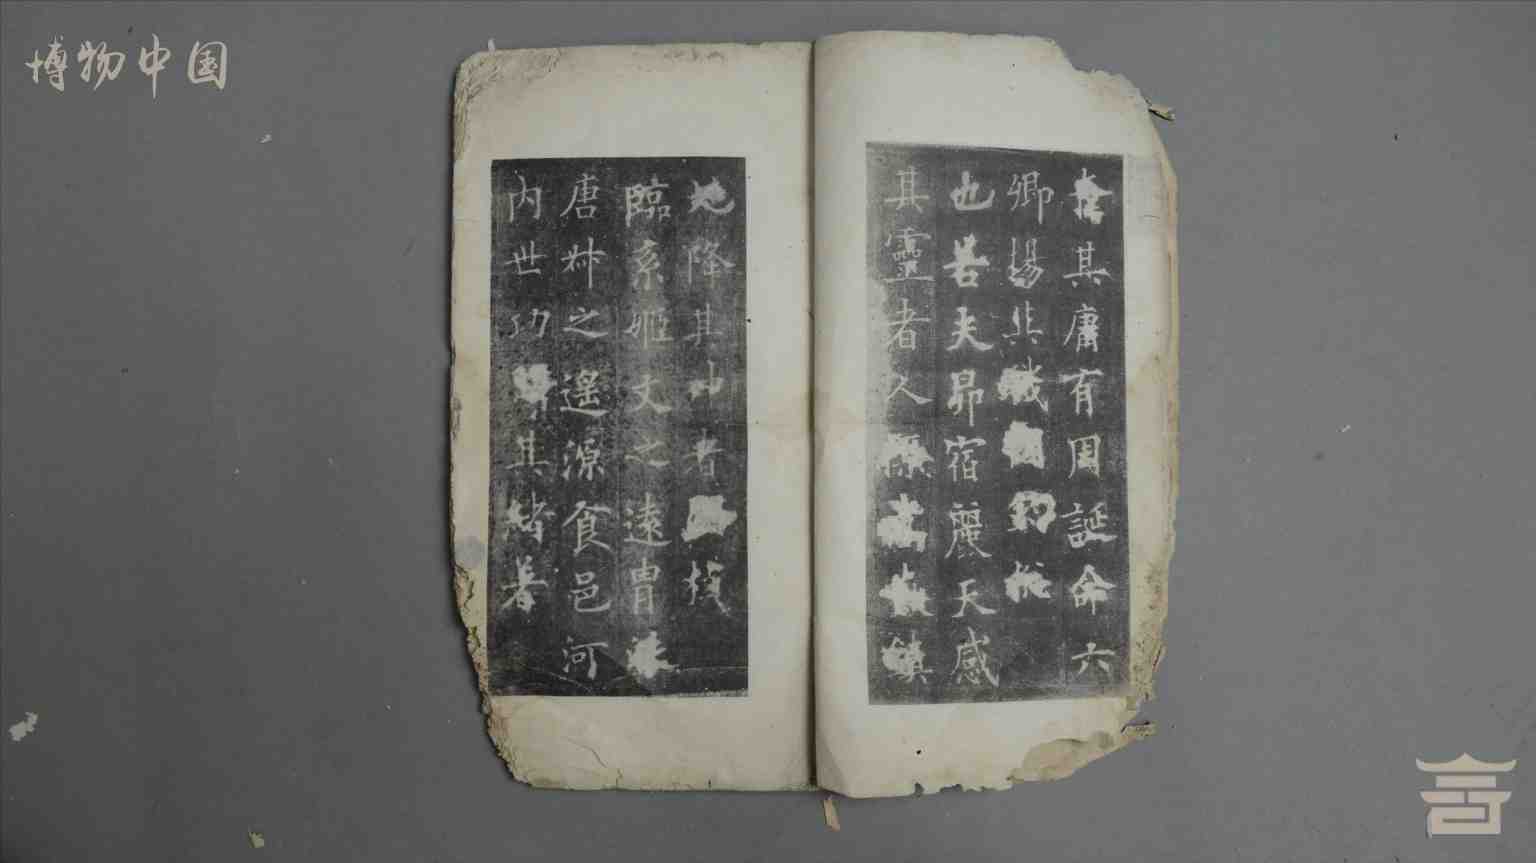 博物中国
其庸有周誕命六
卿揚其職
也若夫昴宿麗天感
其靈者人鎮
地降其神者
臨系姬文之遠胄
唐叔之遥源食邑河
内世功其緒著